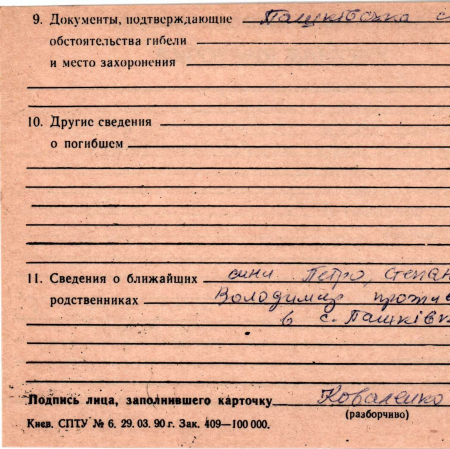 9. Документы, подтверждающие Пашківська с
обстоятельства гибели
и место захоронения
10. Другие сведения
о погибшем
11. Сведения о ближайших сини Петро, Степан
родственниках Володимир прожив
в с. Пашківк
Подпись лица, заполнившего карточку Коваленко
(разборчиво)
Киев. СПТУ № 6. 29. 03. 90 г. Зак. 409—100 000.